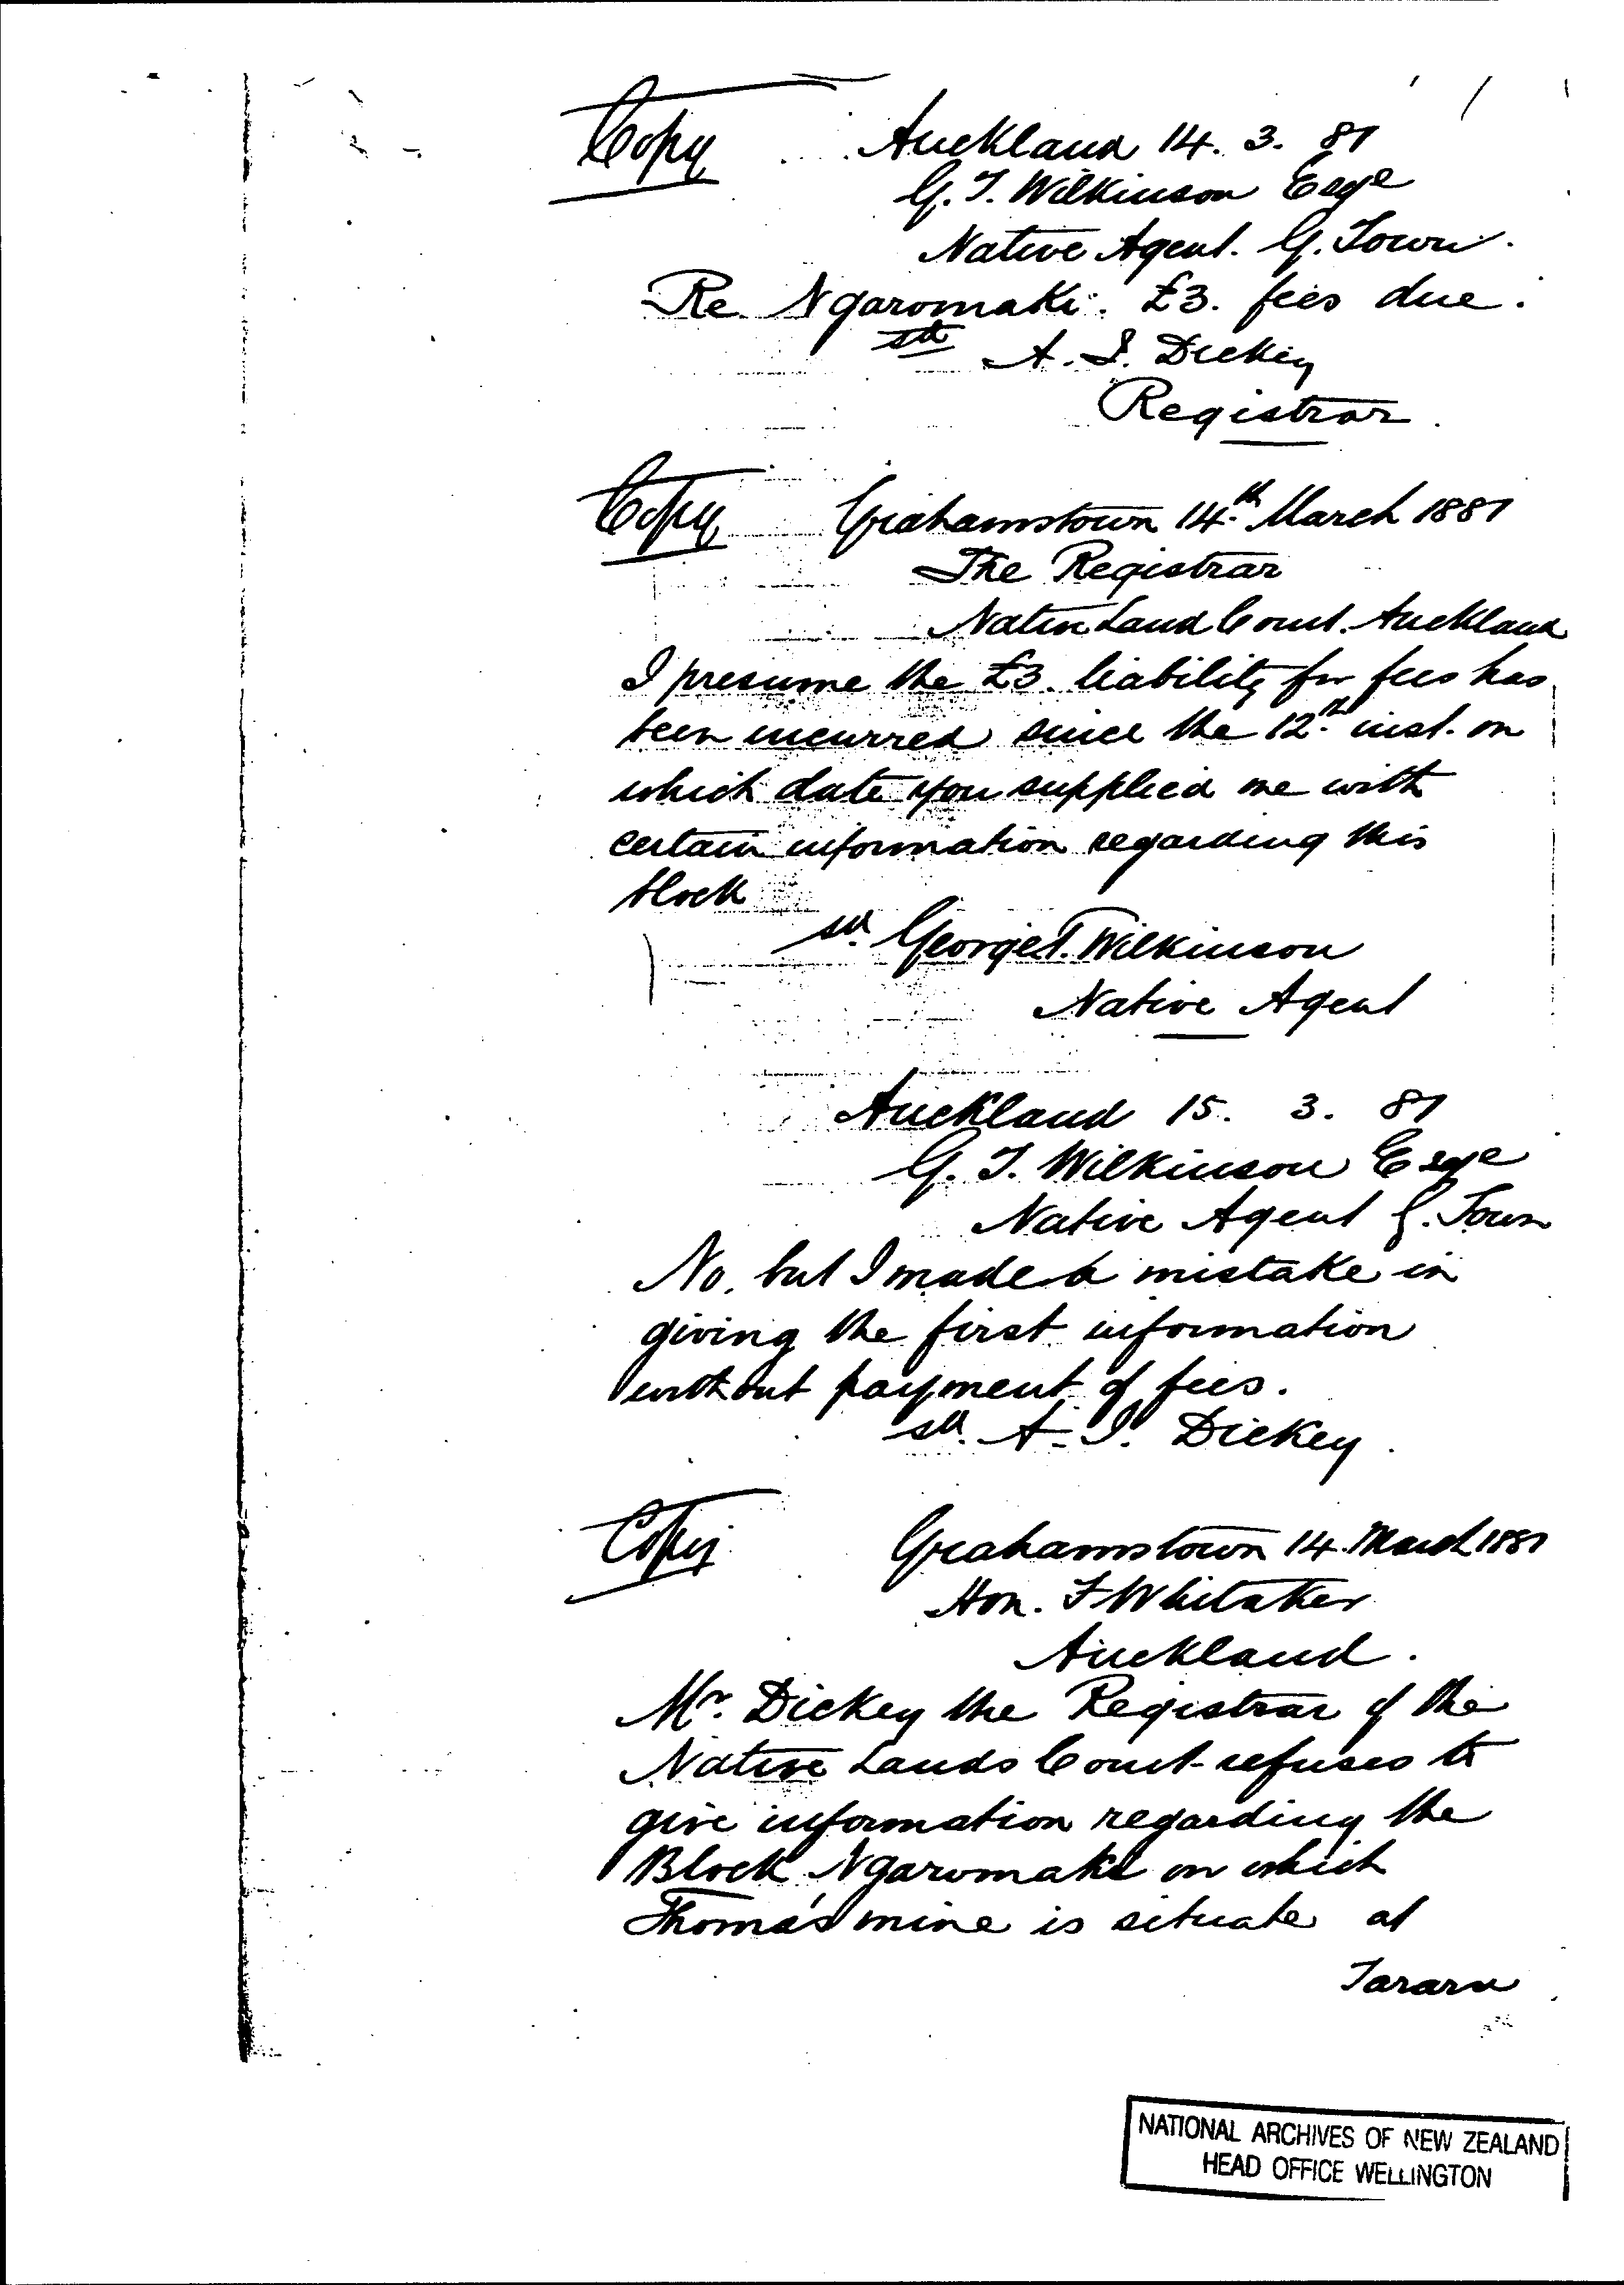 Copy Auckland 14. 3. 81
G. T. Wilkinson Esqe
Native Agent. G. Town.
Re Ngaromaki. £3. fees due.
sd A. J. Dickey
Registrar.
Copy Grahamstown 14.th March 1881
The Registrar
Native Land Court. Auckland
I presume the £3. liability for fees has
been incurred since the 12.th inst. on
which date you supplied me with
certain information regarding this
block
sd. George T. Wilkinson
Native Agent
Auckland 15. 3. 81
G. T. Wilkinson Esqe
Native Agent G. Town
No, but I made a mistake in
giving the first information
without payment of fees.
sd. A. J. Dickey.
Copy Grahamstown 14. March 1881
Hon. F Whitaker
Auckland.
Mr. Dickey the Registrar of the
Native Lands Court refuses to
give information regarding the
Block Ngaromaki on which
Thomas' mine is situate at
Tararu
NATIONAL ARCHIVES OF NEW ZEALAND
HEAD OFFICE WELLINGTON